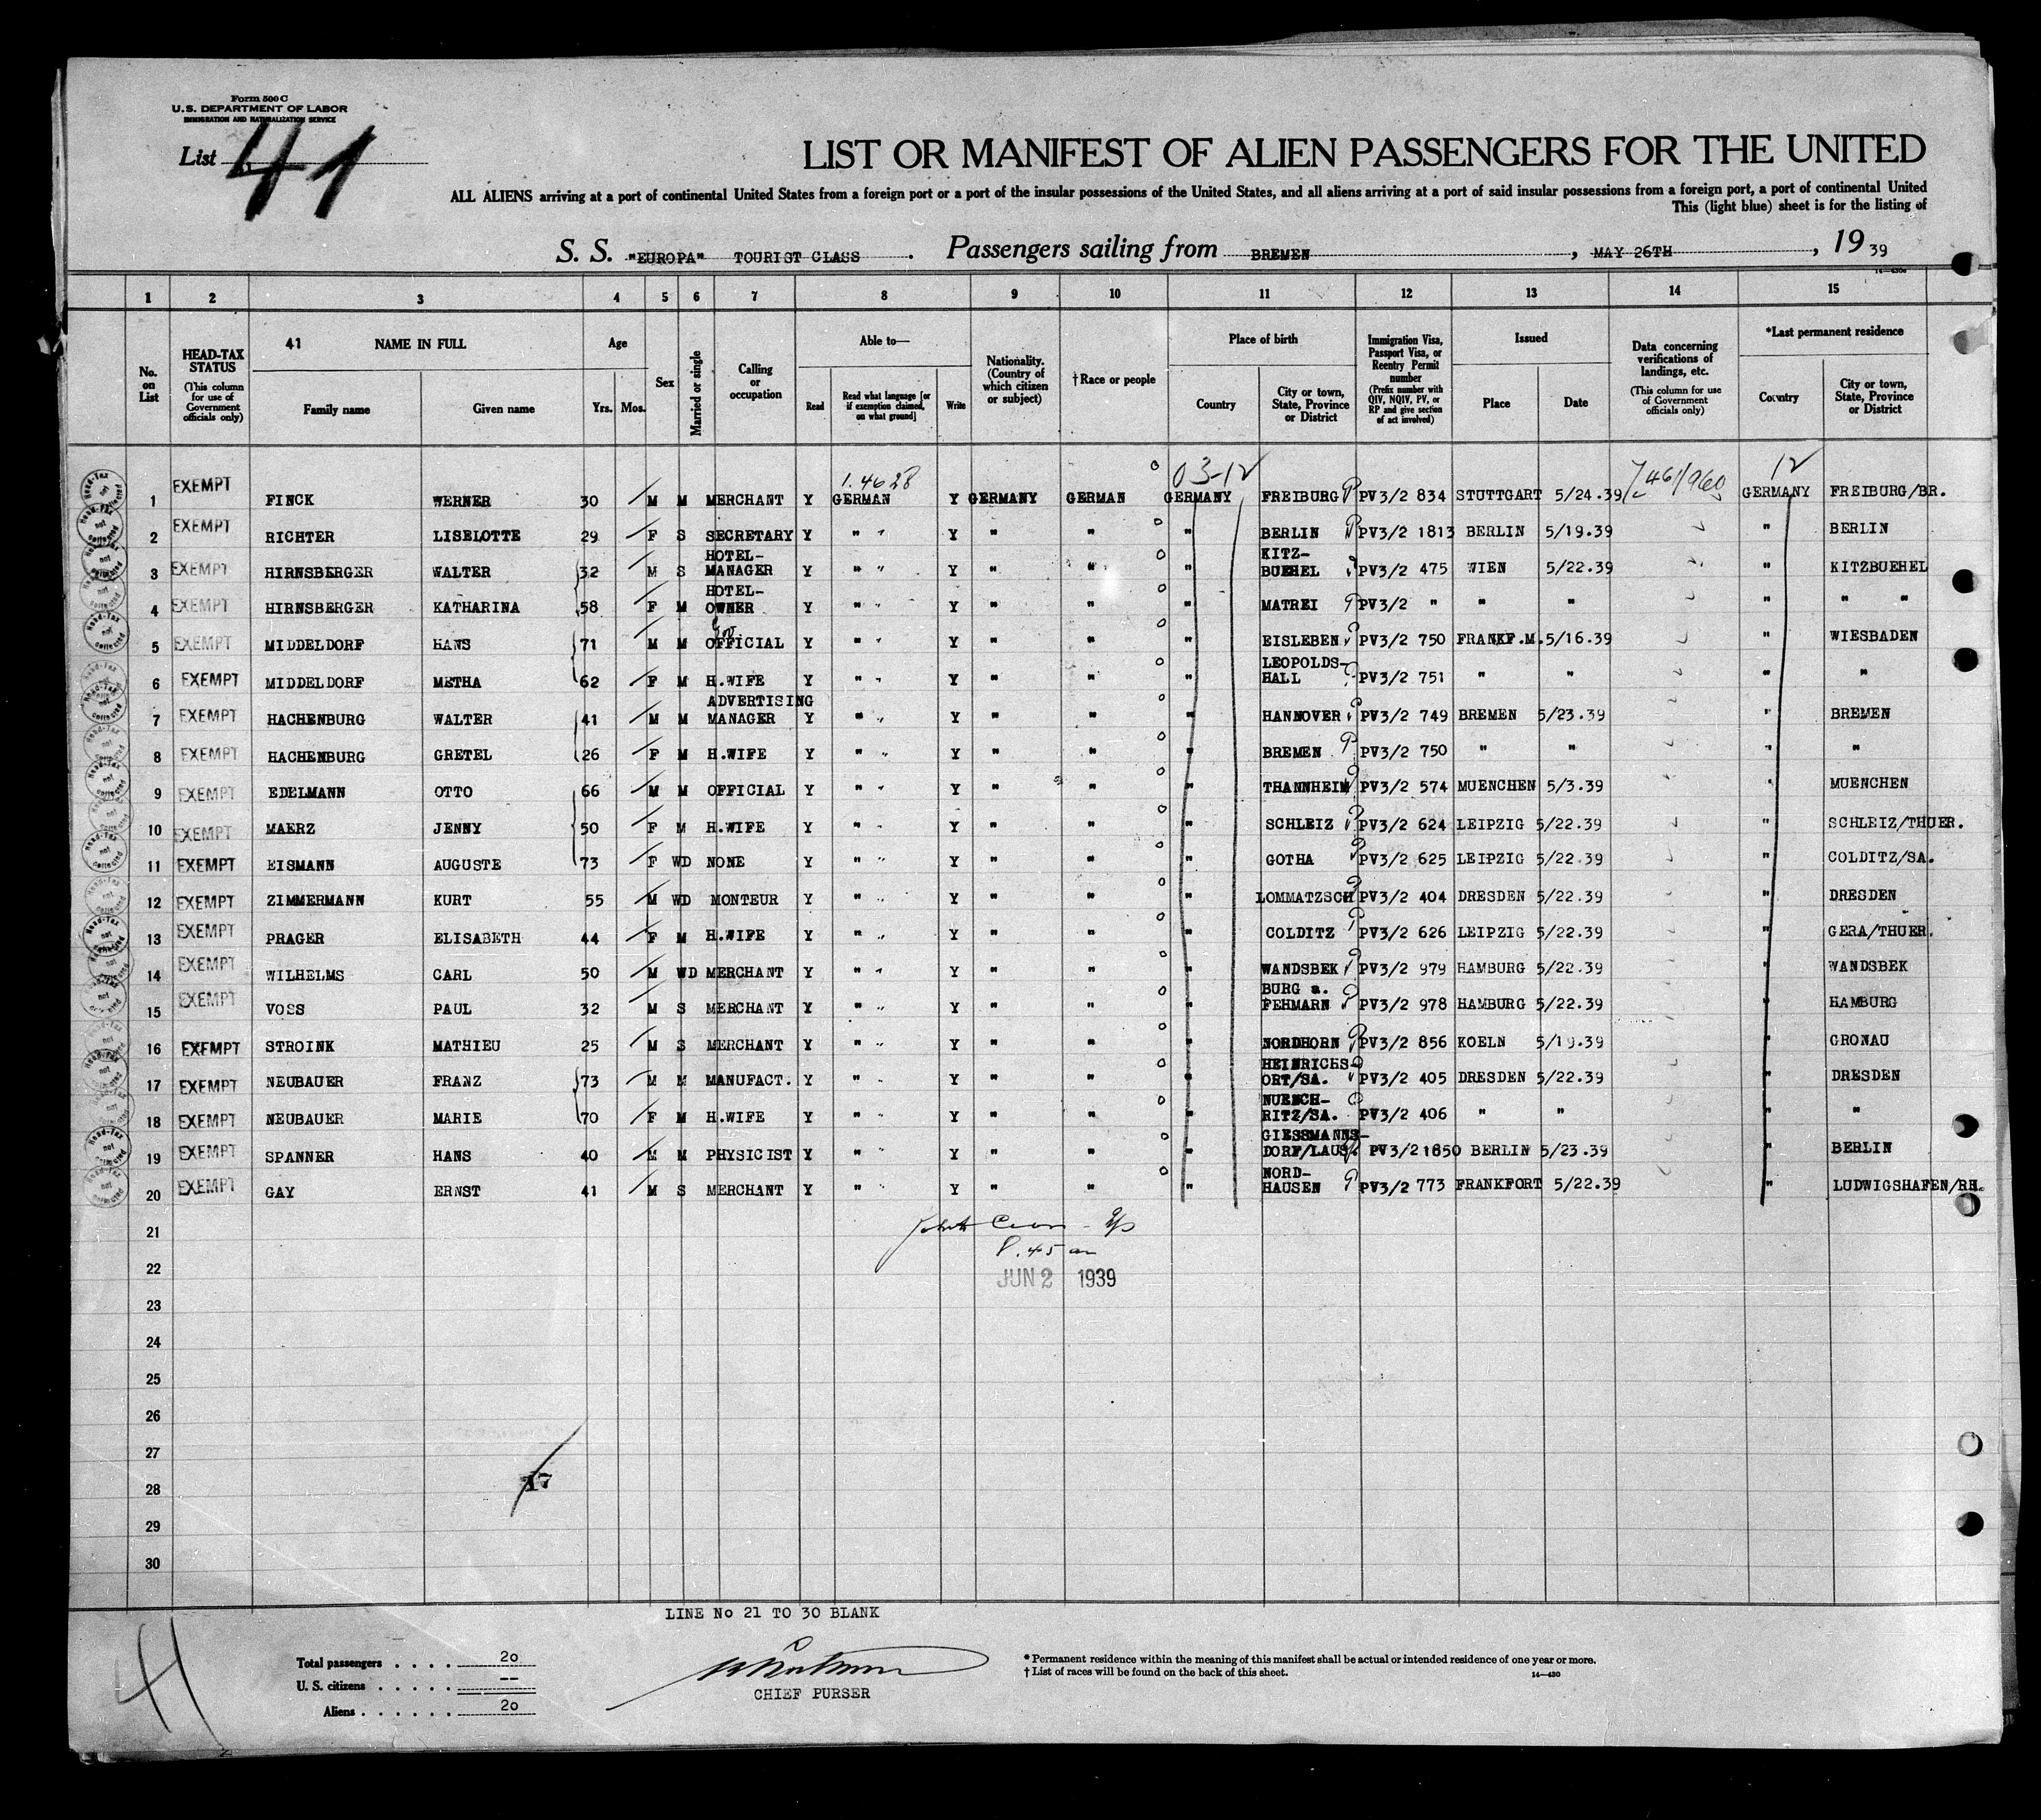 Form 500 C
U. S. DEPARTMENT OF LABOR
IMMIGRATION AND NATURALIZATION SERVICE
List 41
LIST OR MANIFEST OF ALIEN PASSENGERS FOR THE UNITED
ALL ALIENS arriving at a port of continental United States from a foreign port or a port of the insular possessions of the United States, and all aliens arriving at a port of said insular possessions from a foreign port, a port of continental United
This (light blue) sheet is for the listing of
S. S. "EUROPA" TOURIST CLASS . Passengers sailing from BREMEN , MAY 26TH , 19 39
14—430a
1 2 3 4 5 6 7 8 9 10 11 12 13 14 15
No. on List
HEAD-TAX STATUS (This column for use of Government officials only)
41 NAME IN FULL
Family name Given name
Age
Yrs. Mos.
Sex
Married or single
Calling or occupation
Able to—
Read
Read what language [or if exemption claimed, on what ground]
Write
Nationality. (Country of which citizen or subject)
† Race or people
Place of birth
Country
City or town, State, Province or District
Immigration Visa, Passport Visa, or Reentry Permit number (Prefix number with QIV, NQIV, PV, or RP and give section of act involved)
Issued
Place Date
Data concerning verifications of landings, etc. (This column for use of Government officials only)
*Last permanent residence
Country
City or town, State, Province or District
1.4628 03-12 12
1 EXEMPT FINCK WERNER 30 M M MERCHANT Y GERMAN Y GERMANY GERMAN GERMANY FREIBURG PV3/2 834 STUTTGART 5/24.39 GERMANY FREIBURG/BR.
2 EXEMPT RICHTER LISELOTTE 29 F S SECRETARY Y " " Y " " " BERLIN PV3/2 1813 BERLIN 5/19.39 " BERLIN
3 EXEMPT HIRNSBERGER WALTER 32 M S HOTEL-MANAGER Y " " Y " " " KITZ-BUEHEL PV3/2 475 WIEN 5/22.39 " KITZBUEHEL
4 EXEMPT HIRNSBERGER KATHARINA 58 F M HOTEL-OWNER Y " " Y " " " MATREI PV3/2 " " " " " "
5 EXEMPT MIDDELDORF HANS 71 M M OFFICIAL Y " " Y " " " EISLEBEN PV3/2 750 FRANKF.M. 5/16.39 " WIESBADEN
6 EXEMPT MIDDELDORF METHA 62 F M H.WIFE Y " " Y " " " LEOPOLDS-HALL PV3/2 751 " " " "
7 EXEMPT HACHENBURG WALTER 41 M M ADVERTISING MANAGER Y " " Y " " " HANNOVER PV3/2 749 BREMEN 5/23.39 " BREMEN
8 EXEMPT HACHENBURG GRETEL 26 F M H.WIFE Y " " Y " " " BREMEN PV3/2 750 " " " "
9 EXEMPT EDELMANN OTTO 66 M M OFFICIAL Y " " Y " " " THANNHEIM PV3/2 574 MUENCHEN 5/3.39 " MUENCHEN
10 EXEMPT MAERZ JENNY 50 F M H.WIFE Y " " Y " " " SCHLEIZ PV3/2 624 LEIPZIG 5/22.39 " SCHLEIZ/THUER.
11 EXEMPT EISMANN AUGUSTE 73 F WD NONE Y " " Y " " " GOTHA PV3/2 625 LEIPZIG 5/22.39 " COLDITZ/SA.
12 EXEMPT ZIMMERMANN KURT 55 M WD MONTEUR Y " " Y " " " LOMMATZSCH PV3/2 404 DRESDEN 5/22.39 " DRESDEN
13 EXEMPT PRAGER ELISABETH 44 F M H.WIFE Y " " Y " " " COLDITZ PV3/2 626 LEIPZIG 5/22.39 " GERA/THUER.
14 EXEMPT WILHELMS CARL 50 M WD MERCHANT Y " " Y " " " WANDSBEK PV3/2 979 HAMBURG 5/22.39 " WANDSBEK
15 EXEMPT VOSS PAUL 32 M S MERCHANT Y " " Y " " " BURG a. FEHMARN PV3/2 978 HAMBURG 5/22.39 " HAMBURG
16 EXEMPT STROINK MATHIEU 25 M S MERCHANT Y " " Y " " " NORDHORN PV3/2 856 KOELN 5/19.39 " GRONAU
17 EXEMPT NEUBAUER FRANZ 73 M M MANUFACT. Y " " Y " " " HEINRICHS-ORT/SA. PV3/2 405 DRESDEN 5/22.39 " DRESDEN
18 EXEMPT NEUBAUER MARIE 70 F M H.WIFE Y " " Y " " " NUENCH-RITZ/SA. PV3/2 406 " " " "
19 EXEMPT SPANNER HANS 40 M M PHYSICIST Y " " Y " " " GIESSMANNS-DORF/LAUS. PV3/2 1850 BERLIN 5/23.39 " BERLIN
20 EXEMPT GAY ERNST 41 M S MERCHANT Y " " Y " " " NORD-HAUSEN PV3/2 773 FRANKFORT 5/22.39 " LUDWIGSHAFEN/RH.
21
8.45 am
22 JUN 2 1939
23
24
25
26
27
28 17
29
30
LINE No 21 TO 30 BLANK
41
Total passengers . . . . 20
U. S. citizens . . . . . --
Aliens . . . . . . 20
CHIEF PURSER
* Permanent residence within the meaning of this manifest shall be actual or intended residence of one year or more.
† List of races will be found on the back of this sheet.
14—430